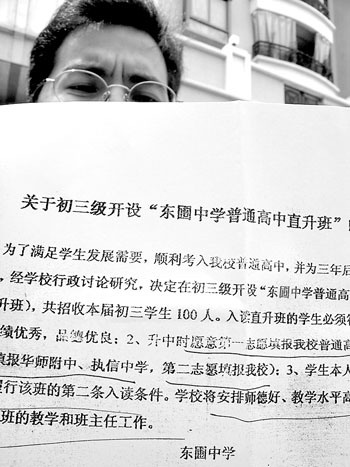 关于初三级开设“东圃中学普通高中直升班”
为了满足学生发展需要，顺利考入我校普通高中，并为三年后
，经学校行政讨论研究，决定在初三级开设“东圃中学普通高
升班），共招收本届初三学生100人。入读直升班的学生必须符
绩优秀，品德优良；2、升中时愿意第一志愿填报我校普通高
填报华师附中、执信中学，第二志愿填报我校）；3、学生本人
履行该班的第二条入读条件。学校将安排师德好、教学水平高
班的教学和班主任工作。
东圃中学